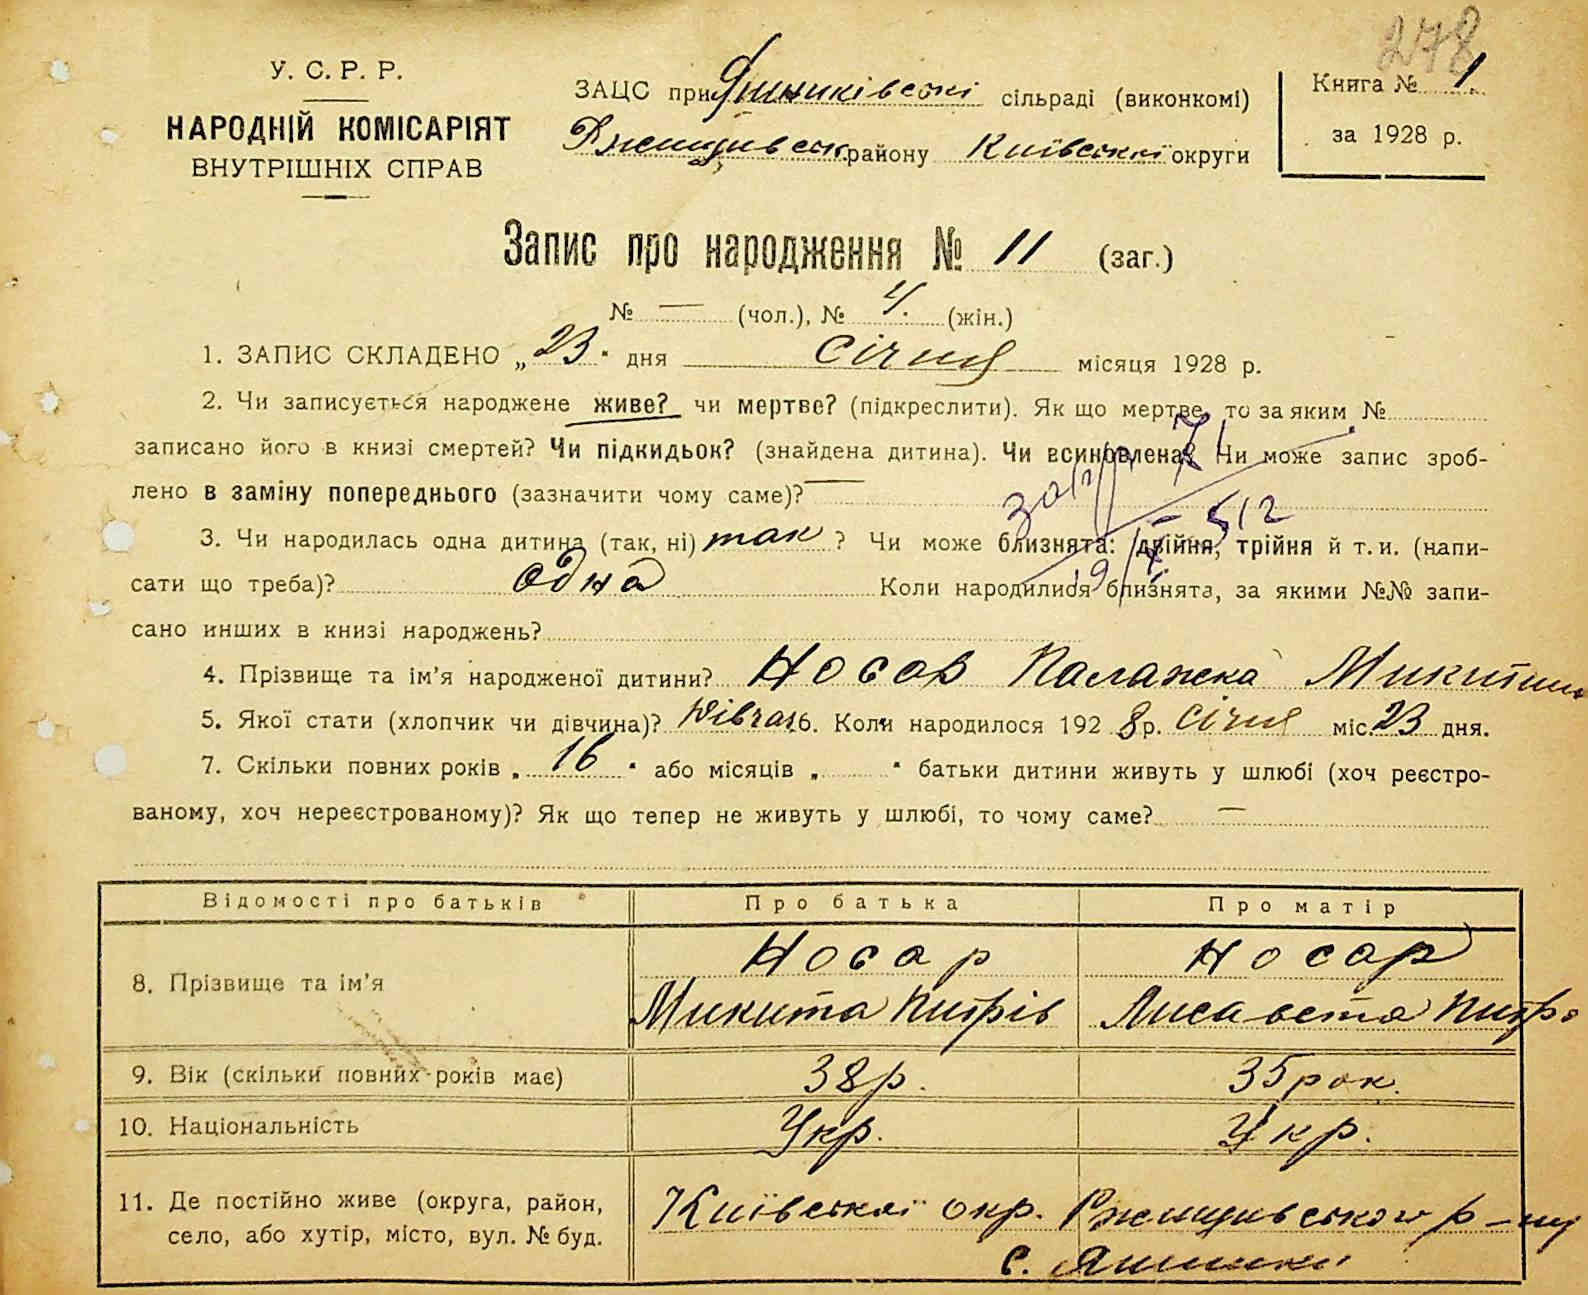 278
У. С. Р. Р.
НАРОДНІЙ КОМІСАРІЯТ
ВНУТРІШНІХ СПРАВ
ЗАЦС при Яшниківські сільраді (виконкомі)
Ржищивськ. району Київської округи
Книга № 1
за 1928 р.
Запис про народження № 11 (заг.)
№ — (чол.), № 4. (жін.)
1. ЗАПИС СКЛАДЕНО „ 23 " дня січня місяця 1928 р.
2. Чи записується народжене живе? чи мертве? (підкреслити). Як що мертве, то за яким №
записано його в книзі смертей? Чи підкидьок? (знайдена дитина). Чи всиновлена? Чи може запис зроб-
лено в заміну попереднього (зазначити чому саме)? —
3. Чи народилась одна дитина (так, ні) так ? Чи може близнята: двійня, трійня й т. и. (напи-
сати що треба)? одна Коли народилися близнята, за якими №№ запи-
сано инших в книзі народжень?
4. Прізвище та ім'я народженої дитини? Носар Палажка Микитина
5. Якої стати (хлопчик чи дівчина)? Дівчач. 6. Коли народилося 192 8 р. січня міс. 23 дня.
7. Скільки повних років „ 16 " або місяців „ " батьки дитини живуть у шлюбі (хоч реєстро-
ваному, хоч нереєстрованому)? Як що тепер не живуть у шлюбі, то чому саме? —
Відомості про батьків Про батька Про матір
8. Прізвище та ім'я Носар Носар
Микита Питрів Лисавета Питр.
9. Вік (скільки повних років має) 38 р. 35 рок.
10. Національність Укр. Укр.
11. Де постійно живе (округа, район, Київської окр. Ржищивського р-ну
село, або хутір, місто, вул. № буд. с. Яшники